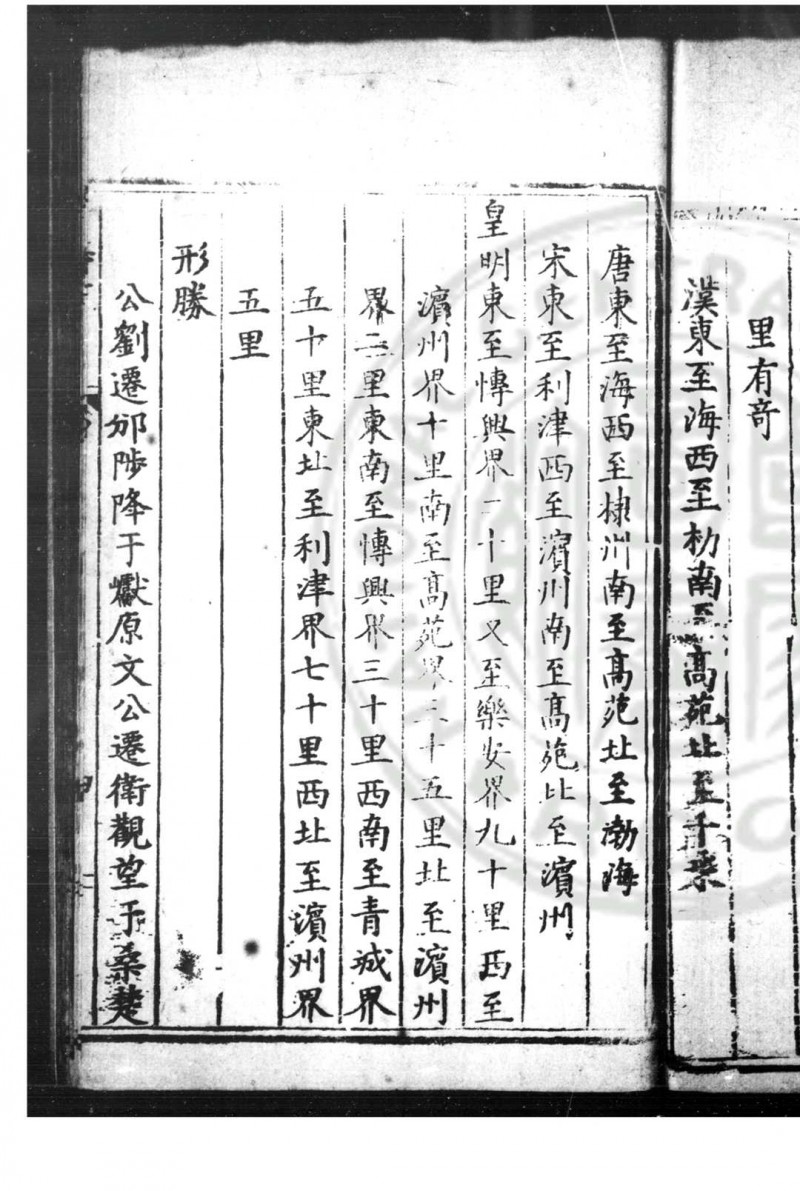 里有竒
漢東至海西至朸南至髙苑北至千乗
唐東至海西至棣州南至髙苑北至渤海
宋東至利津西至濱州南至髙苑北至濱州
皇明東至愽興界二十里又至樂安界九十里西至
濱州界十里南至髙苑界三十五里北至濱州
界二里東南至愽興界三十里西南至青城界
五十里東北至利津界七十里西北至濱州界
五里
形勝
公劉遷邠陟降于巘原文公遷衛觀望于桑楚